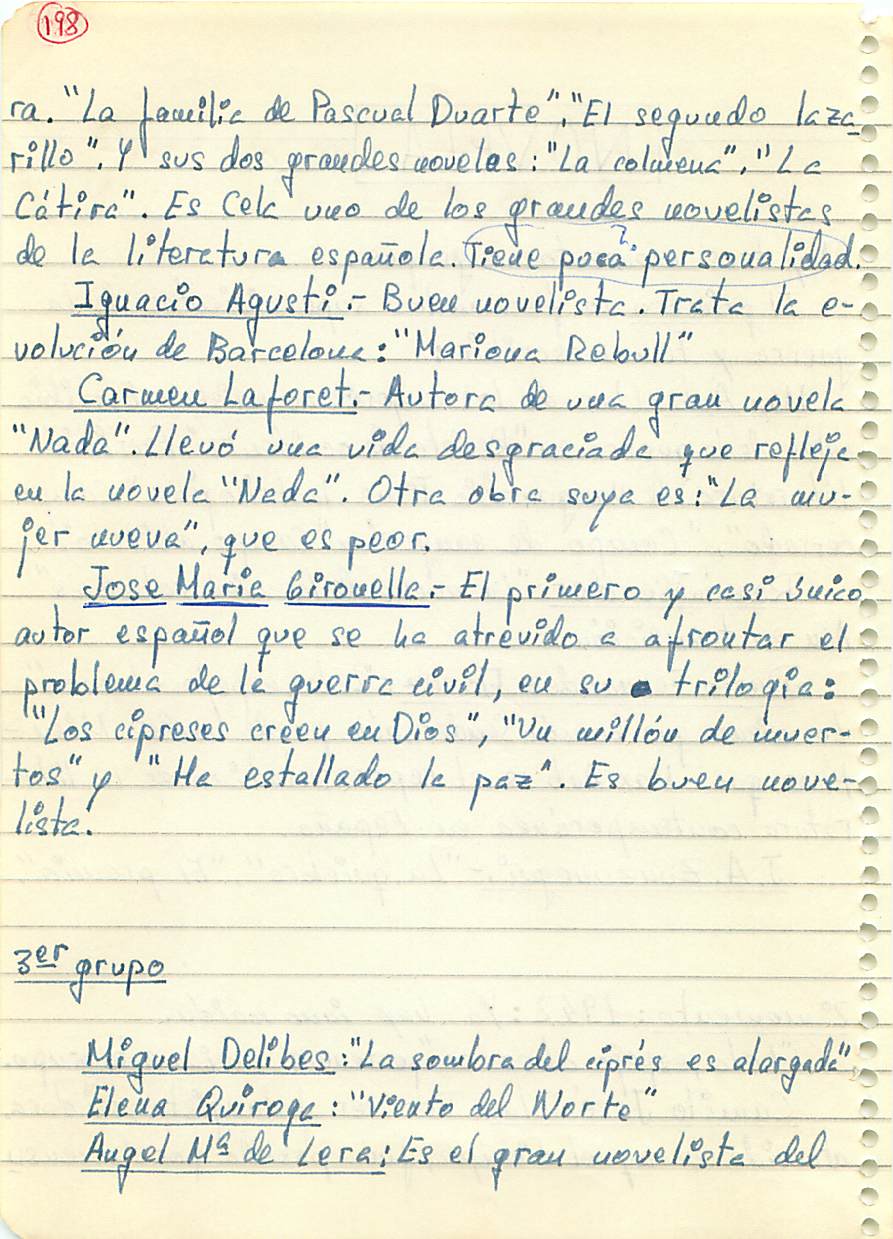 198
ra. "La familia de Pascual Duarte", "El segundo laza
rillo". Y sus dos grandes novelas: "La colmena", "La
Cátira". Es Cela uno de los grandes novelistas
de la literatura española. Tiene poca personalidad.
?
Ignacio Agusti.- Buen novelista. Trata la e-
volución de Barcelona: "Mariona Rebull"
Carmen Laforet.- Autora de una gran novela
"Nada". Llevó una vida desgraciada que refleja
en la novela "Nada". Otra obra suya es: "La mu-
jer nueva", que es peor.
Jose Maria Gironella.- El primero y casi único
autor español que se ha atrevido a afrontar el
problema de la guerra civil, en su trilogia:
"Los cipreses creen en Dios", "Un millón de muer-
tos" y "Ha estallado la paz". Es buen nove-
lista.
3er grupo
Miguel Delibes: "La sombra del ciprés es alargada",
Elena Quiroga: "Viento del Norte"
Angel Mª de Lera: Es el gran novelista del